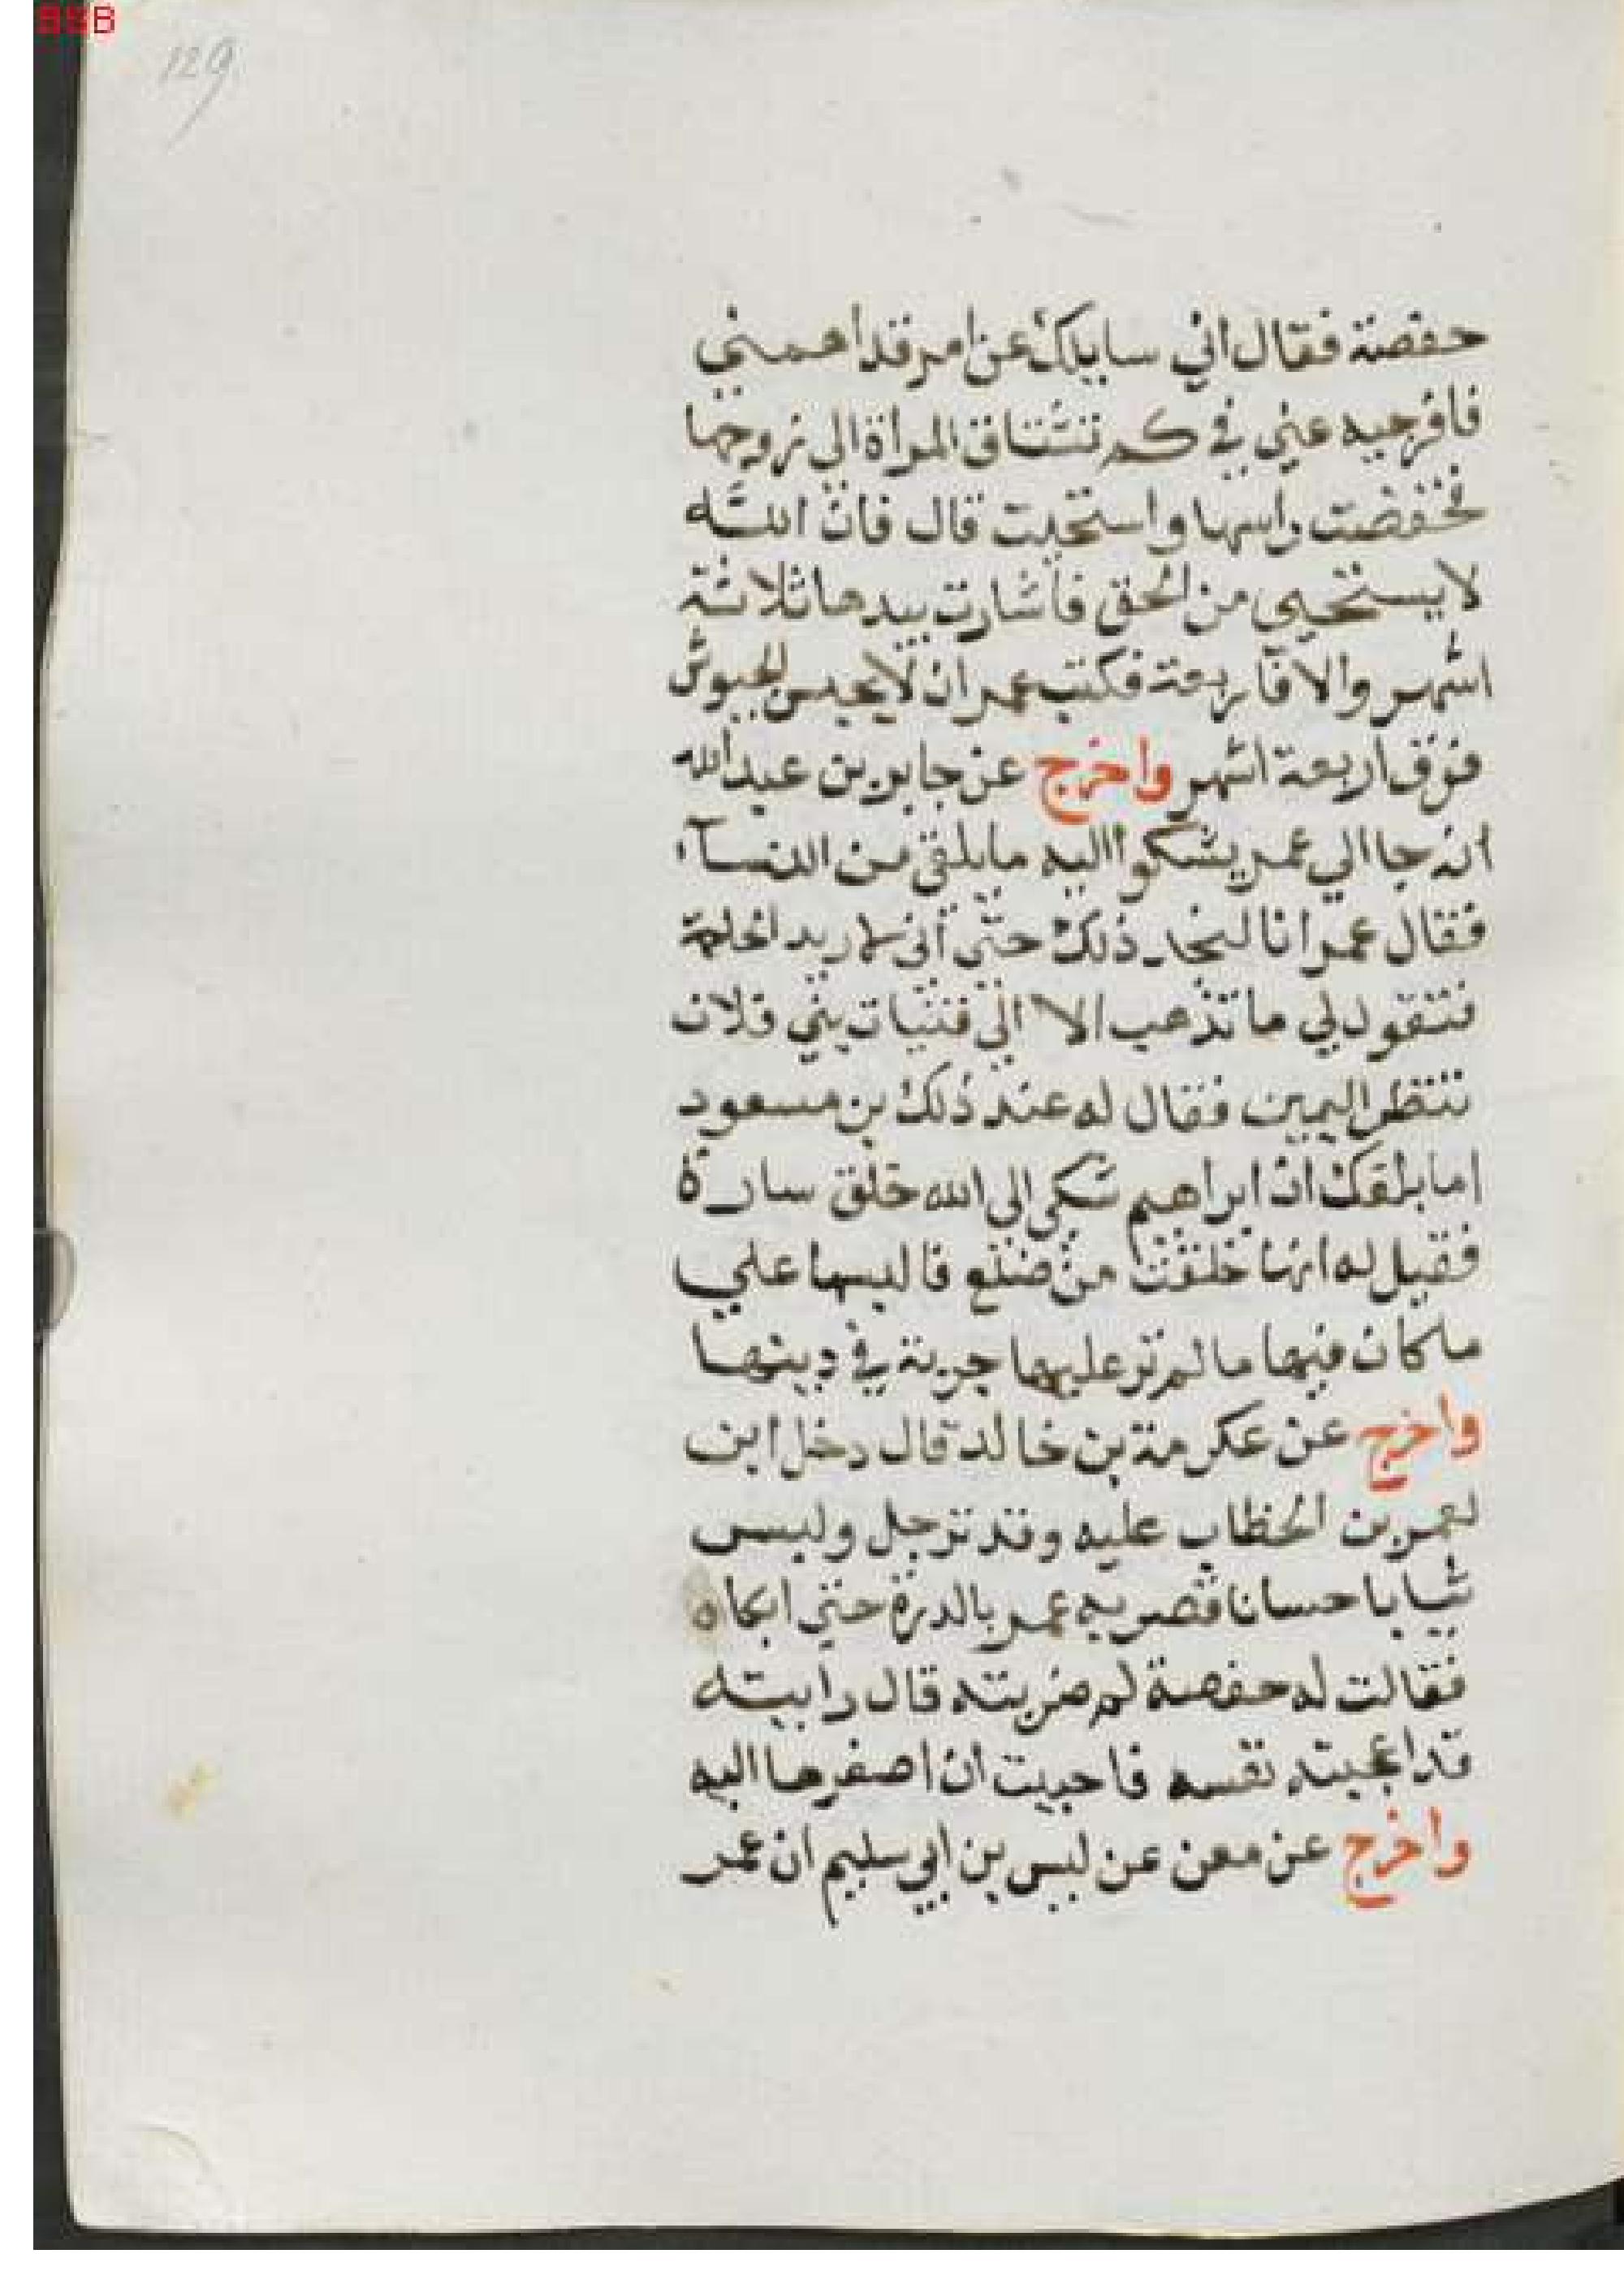 BSB
129
حفصة فقال اني سايلك عن امر قد اهمني
فافرجيه عني في كم تشتاق المراة الي زوجها
فخفضت راسها واستحيت قال فان الله
لا يستحيي من الحق فأشارت بيدها ثلاثة
اشهر والا فاربعة فكتب عمر ان لا يحبس الجيوش
فوق اربعة اشهر واخرج عن جابر بن عبد الله
انه جا الي عمر يشكوا اليه ما يلقي من النسآء
فقال عمر انا لنجد ذلك حتي اني لاريد الحاجة
فتقول لي ما تذهب الا الي فتيات بني فلان
تنتظر اليهن فقال له عند ذلك بن مسعود
اما بلغك ان ابراهيم شكي الي الله خلق سارة
فقيل له انها خلقت من ضلع فالبسها علي
ما كان فيها ما لم تر عليها خربة في دينها
واخرج عن عكرمة بن خالد قال دخل ابن
لعمر بن الخطاب عليه وقد ترجل ولبس
ثيابا حسانا فضربه عمر بالدرة حتي ابكاه
فقالت له حفصة لم ضربته قال رايته
قد اعجبته نفسه فاحببت ان اصغرها اليه
واخرج عن معن عن ليس بن ابي سليم ان عمر